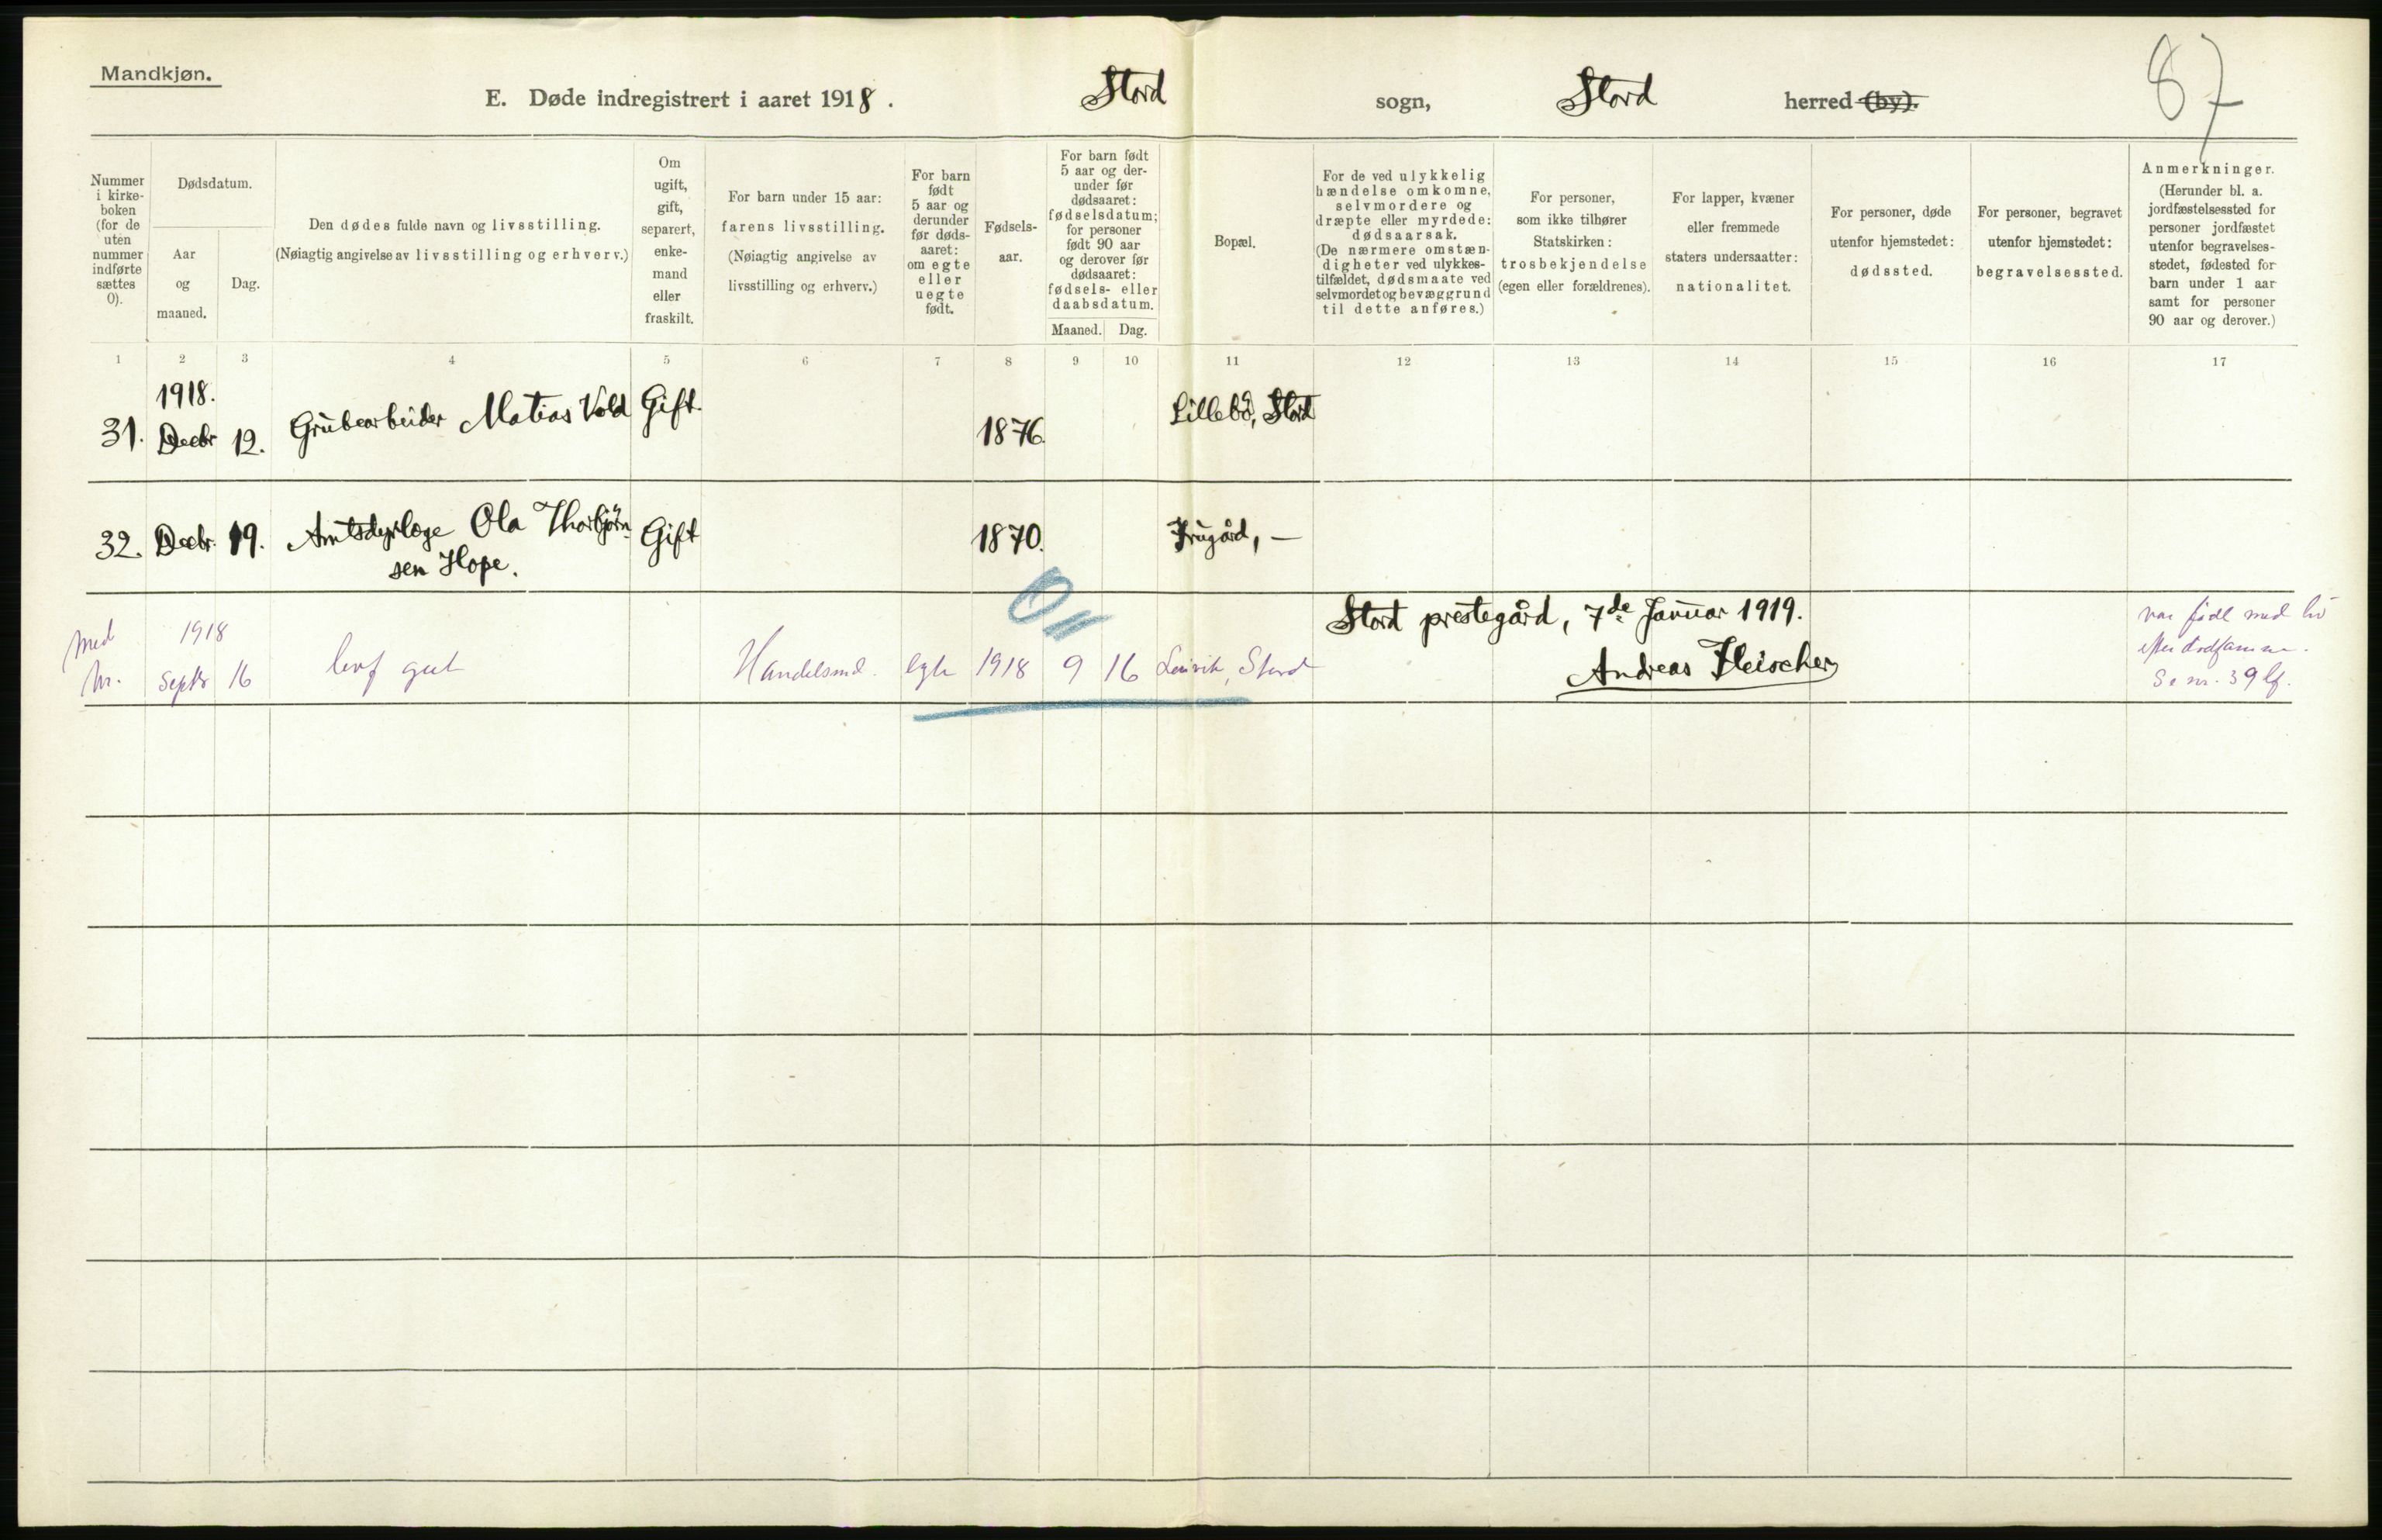 Mandkjøn.
E. Døde indregistrert i aaret 1918. Stord sogn, Stord herred (by).
87
Nummer i kirke-boken (for de uten nummer indførte sættes 0).
Dødsdatum.
Aar og maaned.
Dag.
Den dødes fulde navn og livsstilling.
(Nøiagtig angivelse av livsstilling og erhverv.)
Om ugift, gift, separert, enke-mand eller fraskilt.
For barn under 15 aar:
farens livsstilling.
(Nøiagtig angivelse av
livsstilling og erhverv.)
For barn født 5 aar og derunder før døds-aaret: om egte eller uegte født.
Fødsels-aar.
For barn født 5 aar og der-under før dødsaaret: fødselsdatum; for personer født 90 aar og derover før dødsaaret: fødsels- eller daabsdatum.
Maaned. Dag.
Bopæl.
For de ved ulykkelig hændelse omkomne, selvmordere og dræpte eller myrdede: dødsaarsak.
(De nærmere omstæn-digheter ved ulykkes-tilfældet, dødsmaate ved selvmordet og bevæggrund til dette anføres.)
For personer, som ikke tilhører Statskirken: trosbekjendelse (egen eller forældrenes).
For lapper, kvæner eller fremmede staters undersaatter: nationalitet.
For personer, døde utenfor hjemstedet: dødssted.
For personer, begravet utenfor hjemstedet: begravelsessted.
Anmerkninger.
(Herunder bl. a. jordfæstelsessted for personer jordfæstet utenfor begravelses-stedet, fødested for barn under 1 aar samt for personer 90 aar og derover.)
1 2 3 4 5 6 7 8 9 10 11 12 13 14 15 16 17
1918.
31. Decbr 12. Grubearbeider Matias Vold Gift. 1876. Lillebø, Stord
32. Decbr. 19. Amtsdyrlæge Ola Thorbjørn-
sen Hope. Gift 1870. Frugård, —
Stord prestegård, 7de Januar 1919.
Andreas Fleischer
1918
Sepbr 16 gut Handelsmd. egte 1918 9 16 Leirvik, Stord
var født med liv
efter
Se nr. 39 lf.